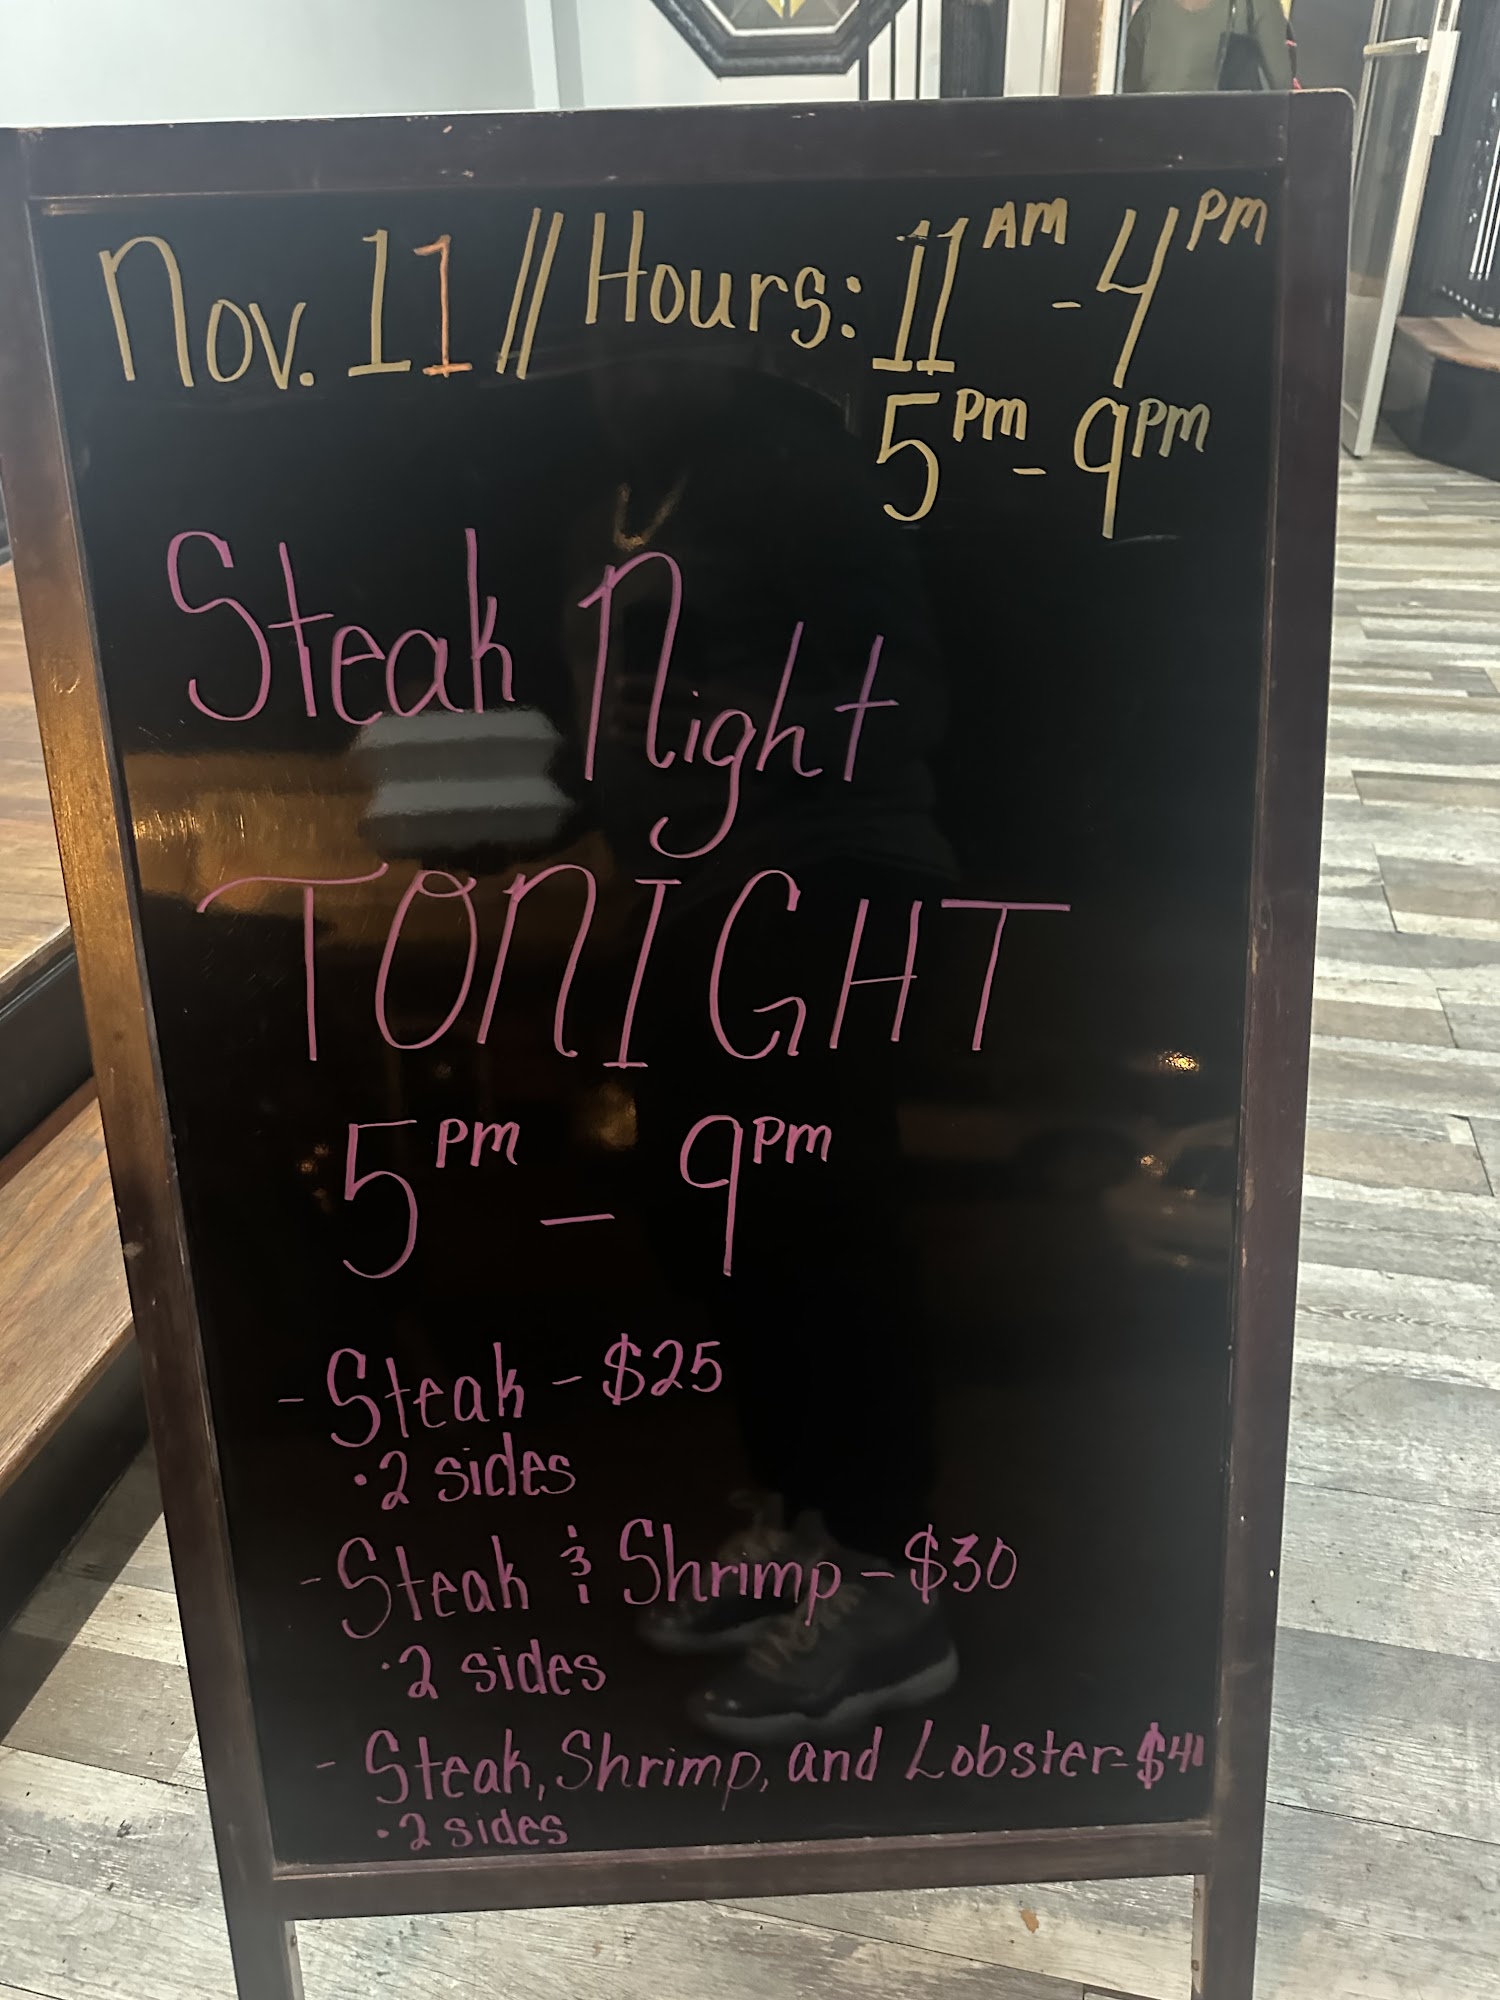 Nov. 11 // Hours: 11AM - 4PM
5PM - 9PM
Steak Night
TONIGHT
5PM - 9PM
- Steak - $25
· 2 sides
- Steak & Shrimp - $30
· 2 sides
- Steak, Shrimp, and Lobster -
· 2 sides